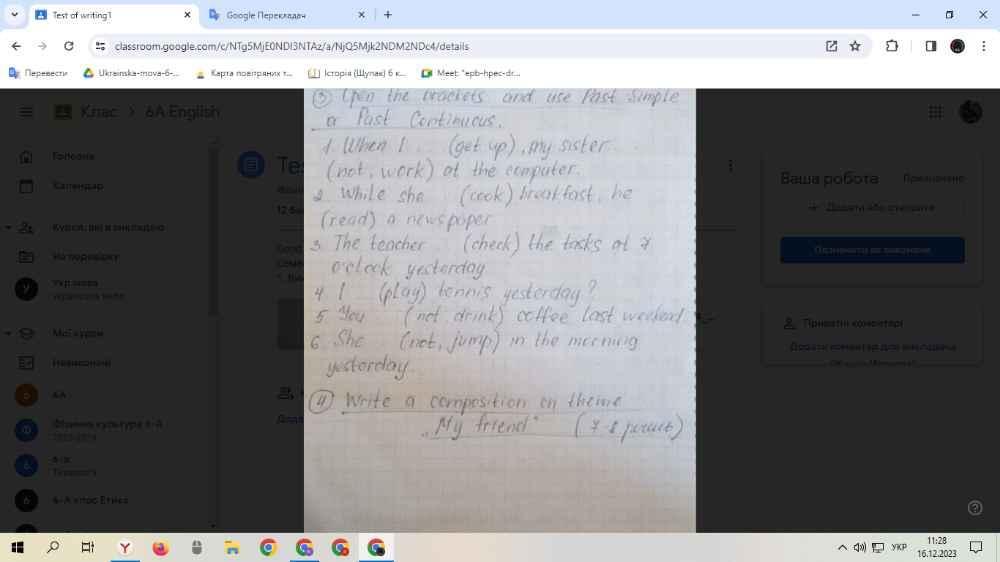 Test of writing1
Google Перекладач
classroom.google.com/c/NTg5MjE0NDI3NTAz/a/NjQ5Mjk2NDM2NDc4/details
Перевести
Ukrainska-mova-6-...
Карта повітряних т...
Історія (Щупак) 6 к...
Meet: "epb-hpec-dr...
Клас > 6A English
Головна
Календар
Курси, які я викладаю
На перевірку
Укр мова
Мої курси
Невиконані
6А
Фізична культура 6-А
2023-2024
6-а
6-А клас Етика
Te
12 ба
Дода
Ваша робота
Призначено
+ Додати або створити
Позначити як виконане
Приватні коментарі
Додати коментар для викладача
3 Open the brackets and use Past Simple
or Past Continuous.
1. When I (get up), my sister
(not, work) at the computer.
2. While she (cook) breakfast, he
(read) a newspaper
3. The teacher (check) the tasks at 7
o'clock yesterday
4. I (play) tennis yesterday?
5. You (not drink) coffee last weekend
6. She (not, jump) in the morning
yesterday.
4 Write a composition on theme
„My friend" (7-8 речень)
УКР
11:28
16.12.2023